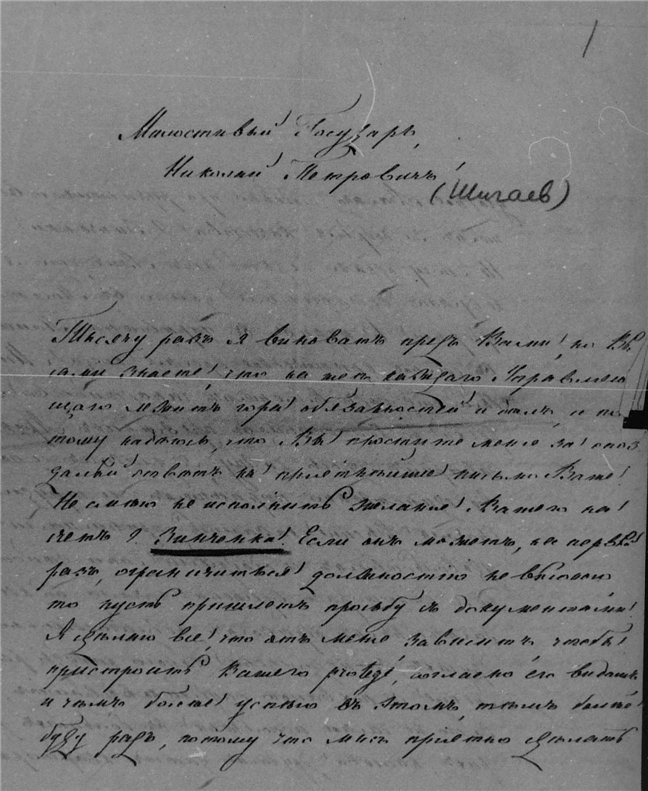 1
Милостивый Государь,
Николай Петровичъ!
(Шигаев)
Тысячу разъ я виноватъ предъ Вами! но Вы
сами знаете! что на шеѣ каждаго Управляю
щаго лежитъ гора! обязанностей! и дѣлъ, и по
тому надѣюсь, что Вы! простите меня за! опоз
далый отвѣтъ на! пріятнѣйшее! письмо Ваше!
Не смѣю не исполнить желанія! Вашего на!
счетъ Г. Зинченка! Если онъ можетъ, на первый
разъ, ограничиться! должностію не высокою
то пусть пришлетъ прозьбу съ документами!
Я сдѣлаю все! что отъ меня зависитъ, чтобы!
пристроить Вашего protegé, согласно его видамъ
и чѣмъ болѣе! успѣю въ этомъ, тѣмъ болѣе
буду радъ, потому что мнѣ пріятно сдѣлать